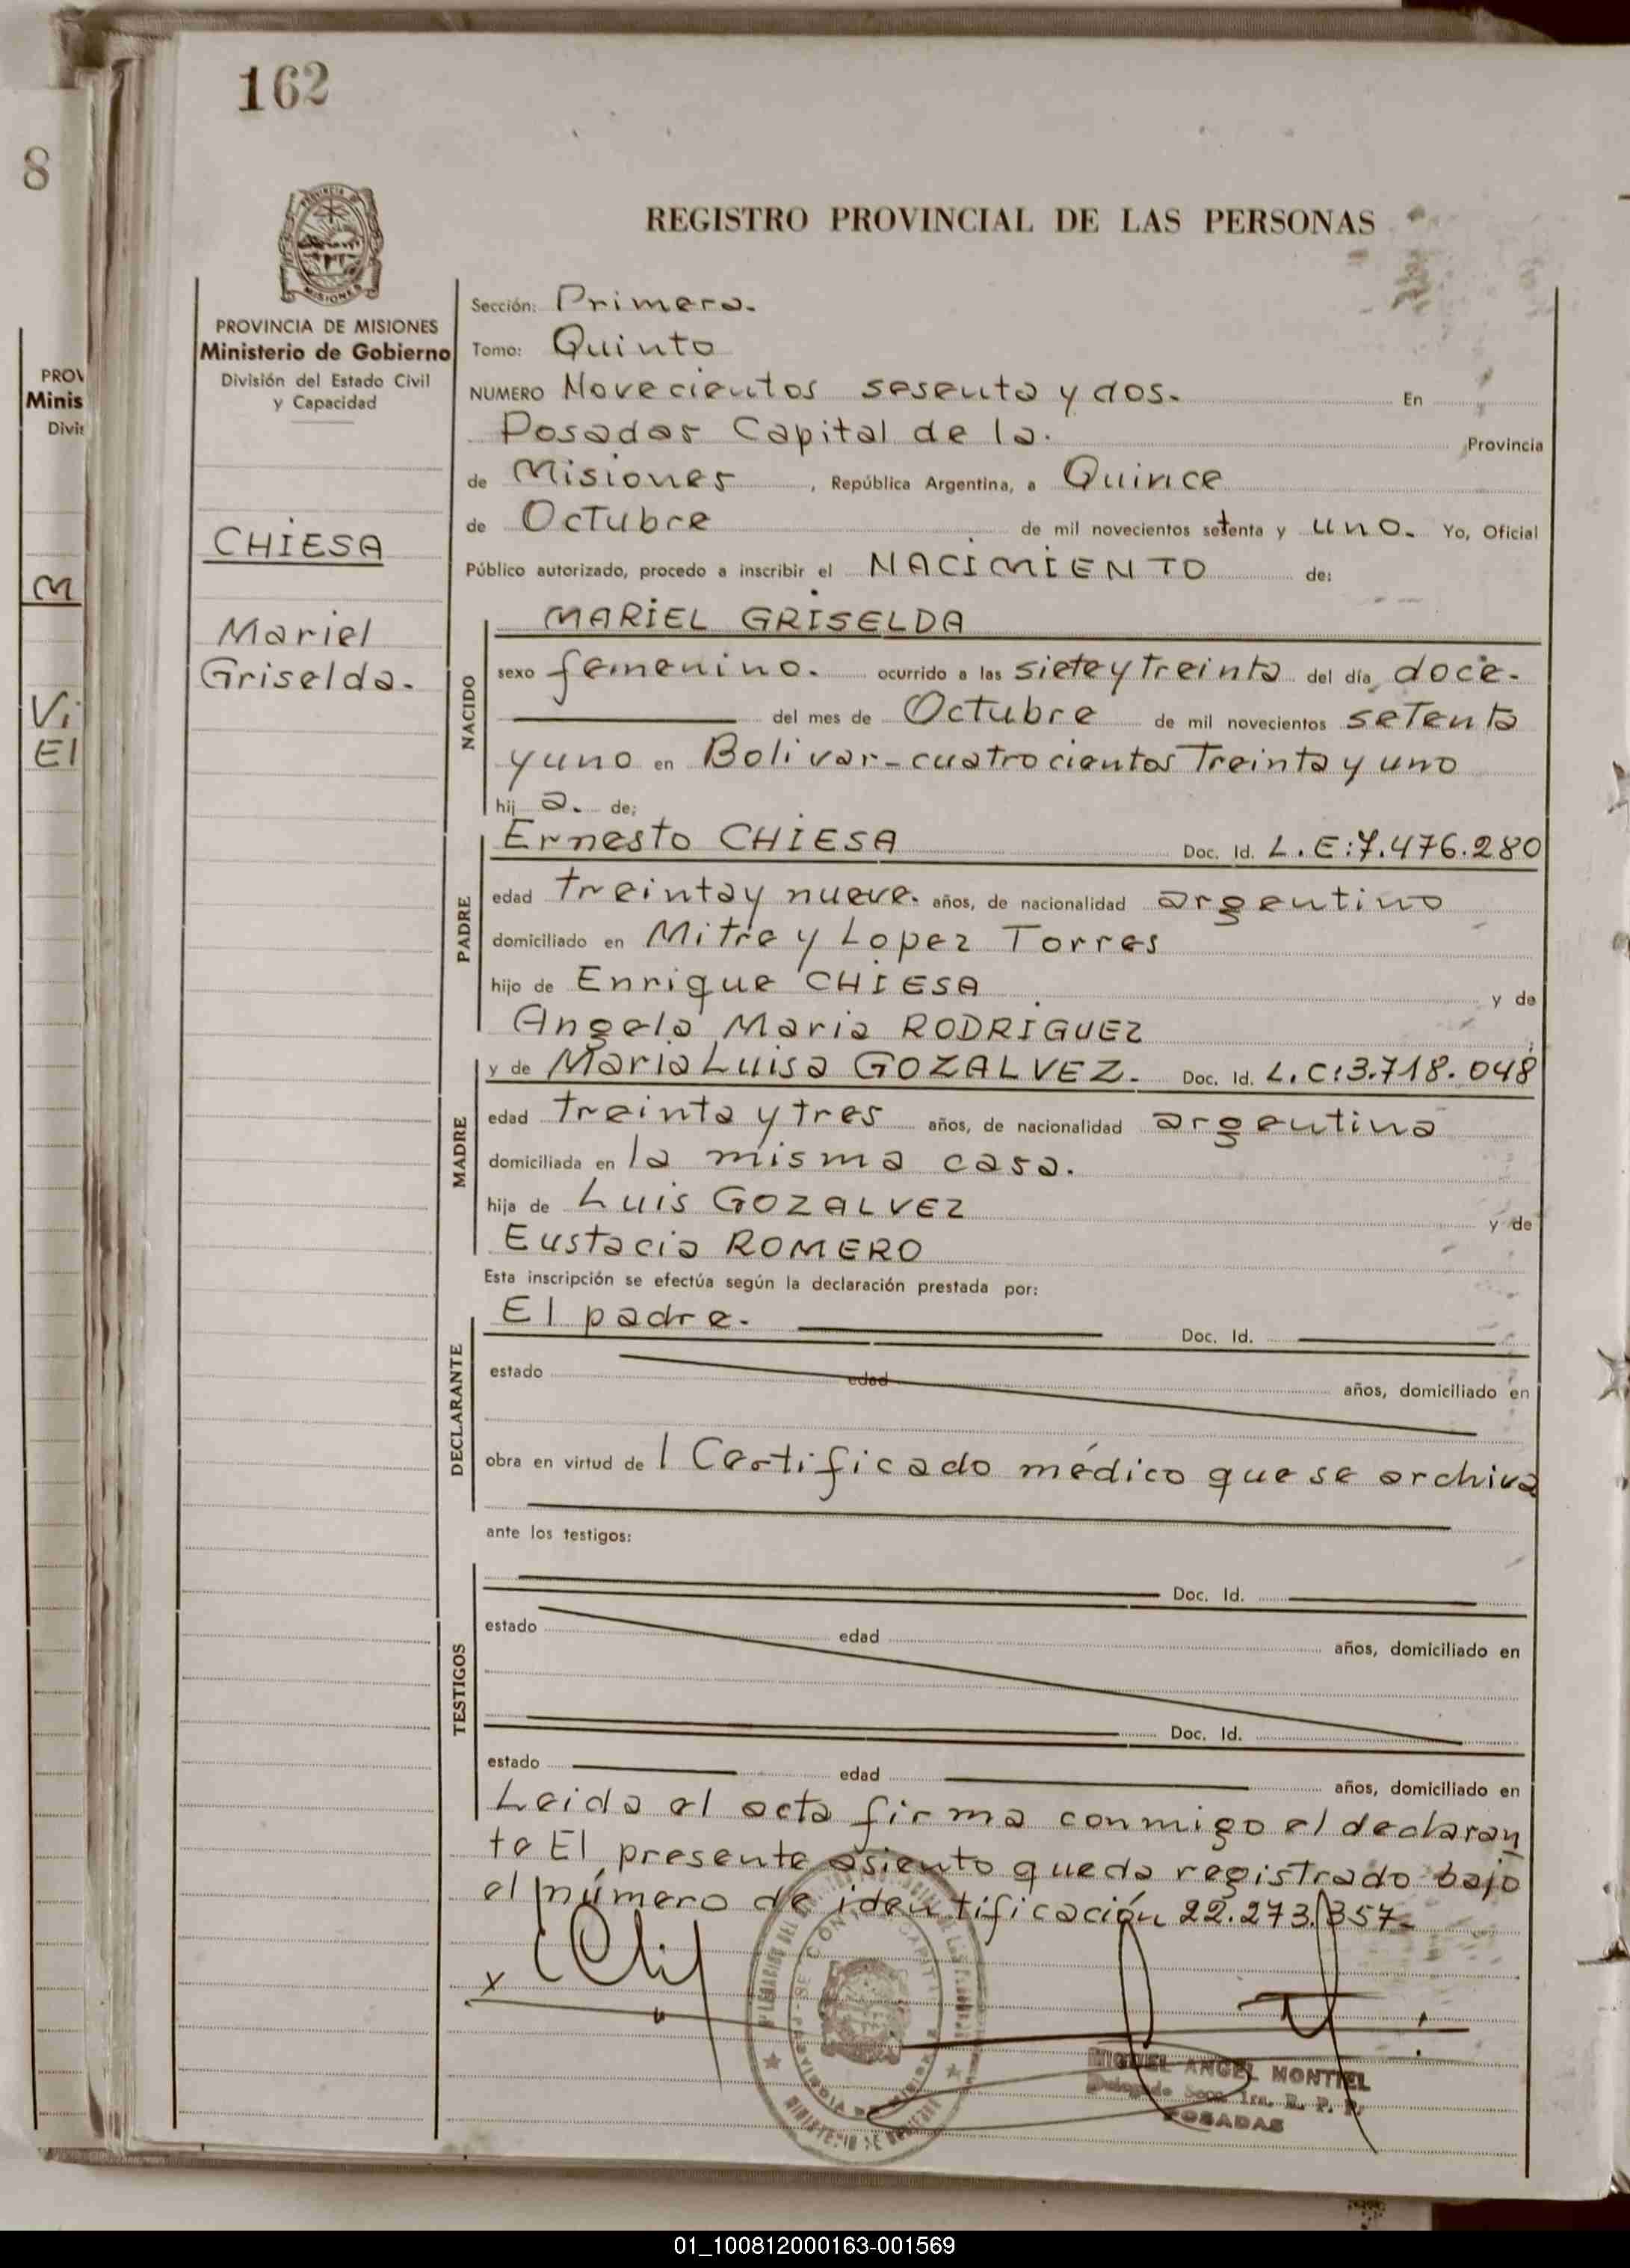 162
8
REGISTRO PROVINCIAL DE LAS PERSONAS
PROVINCIA DE MISIONES
Ministerio de Gobierno
División del Estado Civil
y Capacidad
CHIESA
Mariel
Griselda.
PROV
Minis
Divis
M
Vi
El
Sección: Primera.
Tomo: Quinto
NUMERO Novecientos sesenta y dos. En
Posadas Capital de la. Provincia
de Misiones, República Argentina, a Quince
de Octubre de mil novecientos setenta y uno. Yo, Oficial
Público autorizado, procedo a inscribir el NACIMIENTO de:
MARIEL GRISELDA
NACIDO
sexo femenino. ocurrido a las siete y treinta del día doce.
del mes de Octubre de mil novecientos setenta
y uno en Bolivar-cuatrocientos Treinta y uno
hij a. de:
PADRE
Ernesto CHIESA Doc. Id. L.E:7.476.280
edad treinta y nueve. años, de nacionalidad argentino
domiciliado en Mitre y Lopez Torres
hijo de Enrique CHIESA y de
Angela Maria RODRIGUEZ
MADRE
y de Maria Luisa GOZALVEZ. Doc. Id. L.C:3.718.048
edad treinta y tres años, de nacionalidad argentina
domiciliada en la misma casa.
hija de Luis GOZALVEZ y de
Eustacia ROMERO
Esta inscripción se efectúa según la declaración prestada por:
DECLARANTE
El padre. Doc. Id.
estado edad años, domiciliado en
obra en virtud de l Certificado médico que se archiva
ante los testigos:
TESTIGOS
Doc. Id.
estado edad años, domiciliado en
Doc. Id.
estado edad años, domiciliado en
Leida el acta firma conmigo el declaran
te El presente asiento queda registrado bajo
el número de identificación 22.273.357-
MIGUEL ANGEL MONTIEL
Delegado Secc. 1ra. R. P. P.
POSADAS
01_100812000163-001569